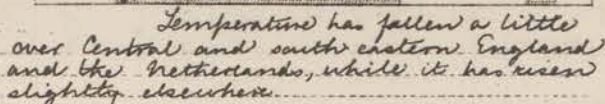 Temperature has fallen a little
over Central and south eastern England
and the Netherlands, while it has risen
slightly elsewhere